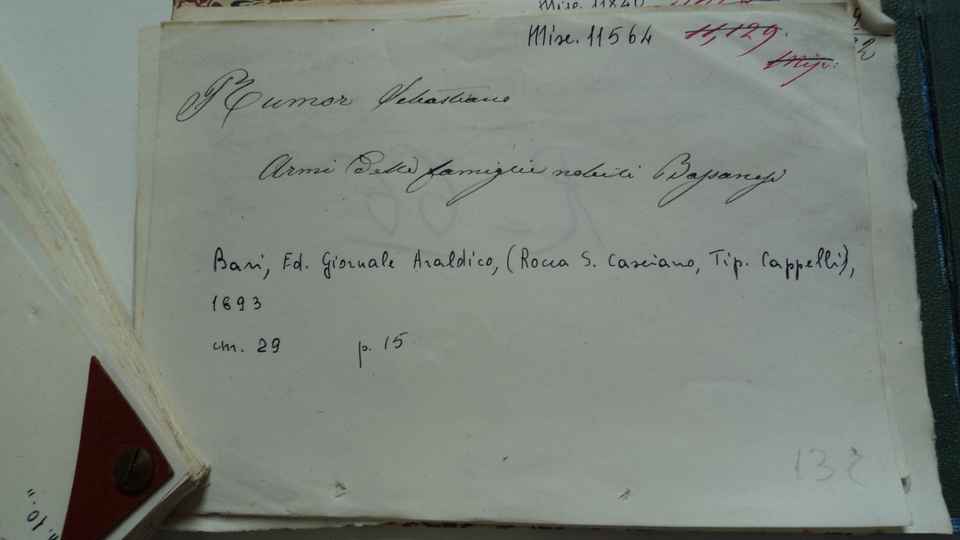 Misc. 11840
Misc. 11564 11,129.
Mis.
Rumor Sebastiano
Armi delle famiglie nobili Bassanesi
Bari, Ed. Giornale Araldico, (Rocca S. Casciano, Tip. Cappelli),
1893
cm. 29 p. 15
132
". 10 "